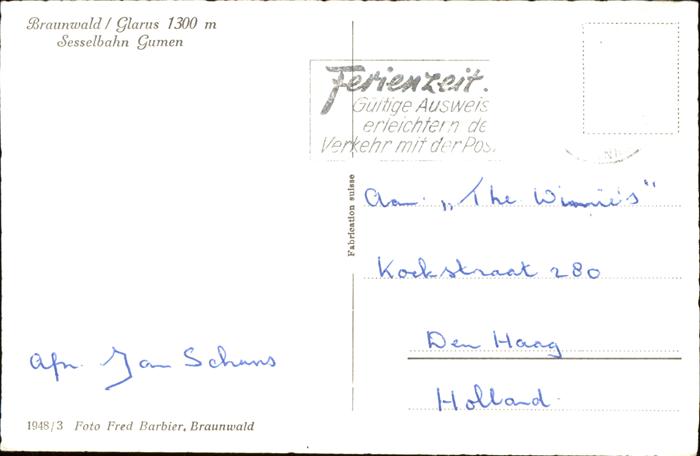 Braunwald / Glarus 1300 m
Sesselbahn Gumen
Ferienzeit.
Gültige Ausweis
erleichtern de
Verkehr mit der Pos.
Fabrication suisse
Aan „The Winnie's"
Kockstraat 280
Den Haag
Holland.
Afz. Jan Schuns
1948/3 Foto Fred Barbier, Braunwald